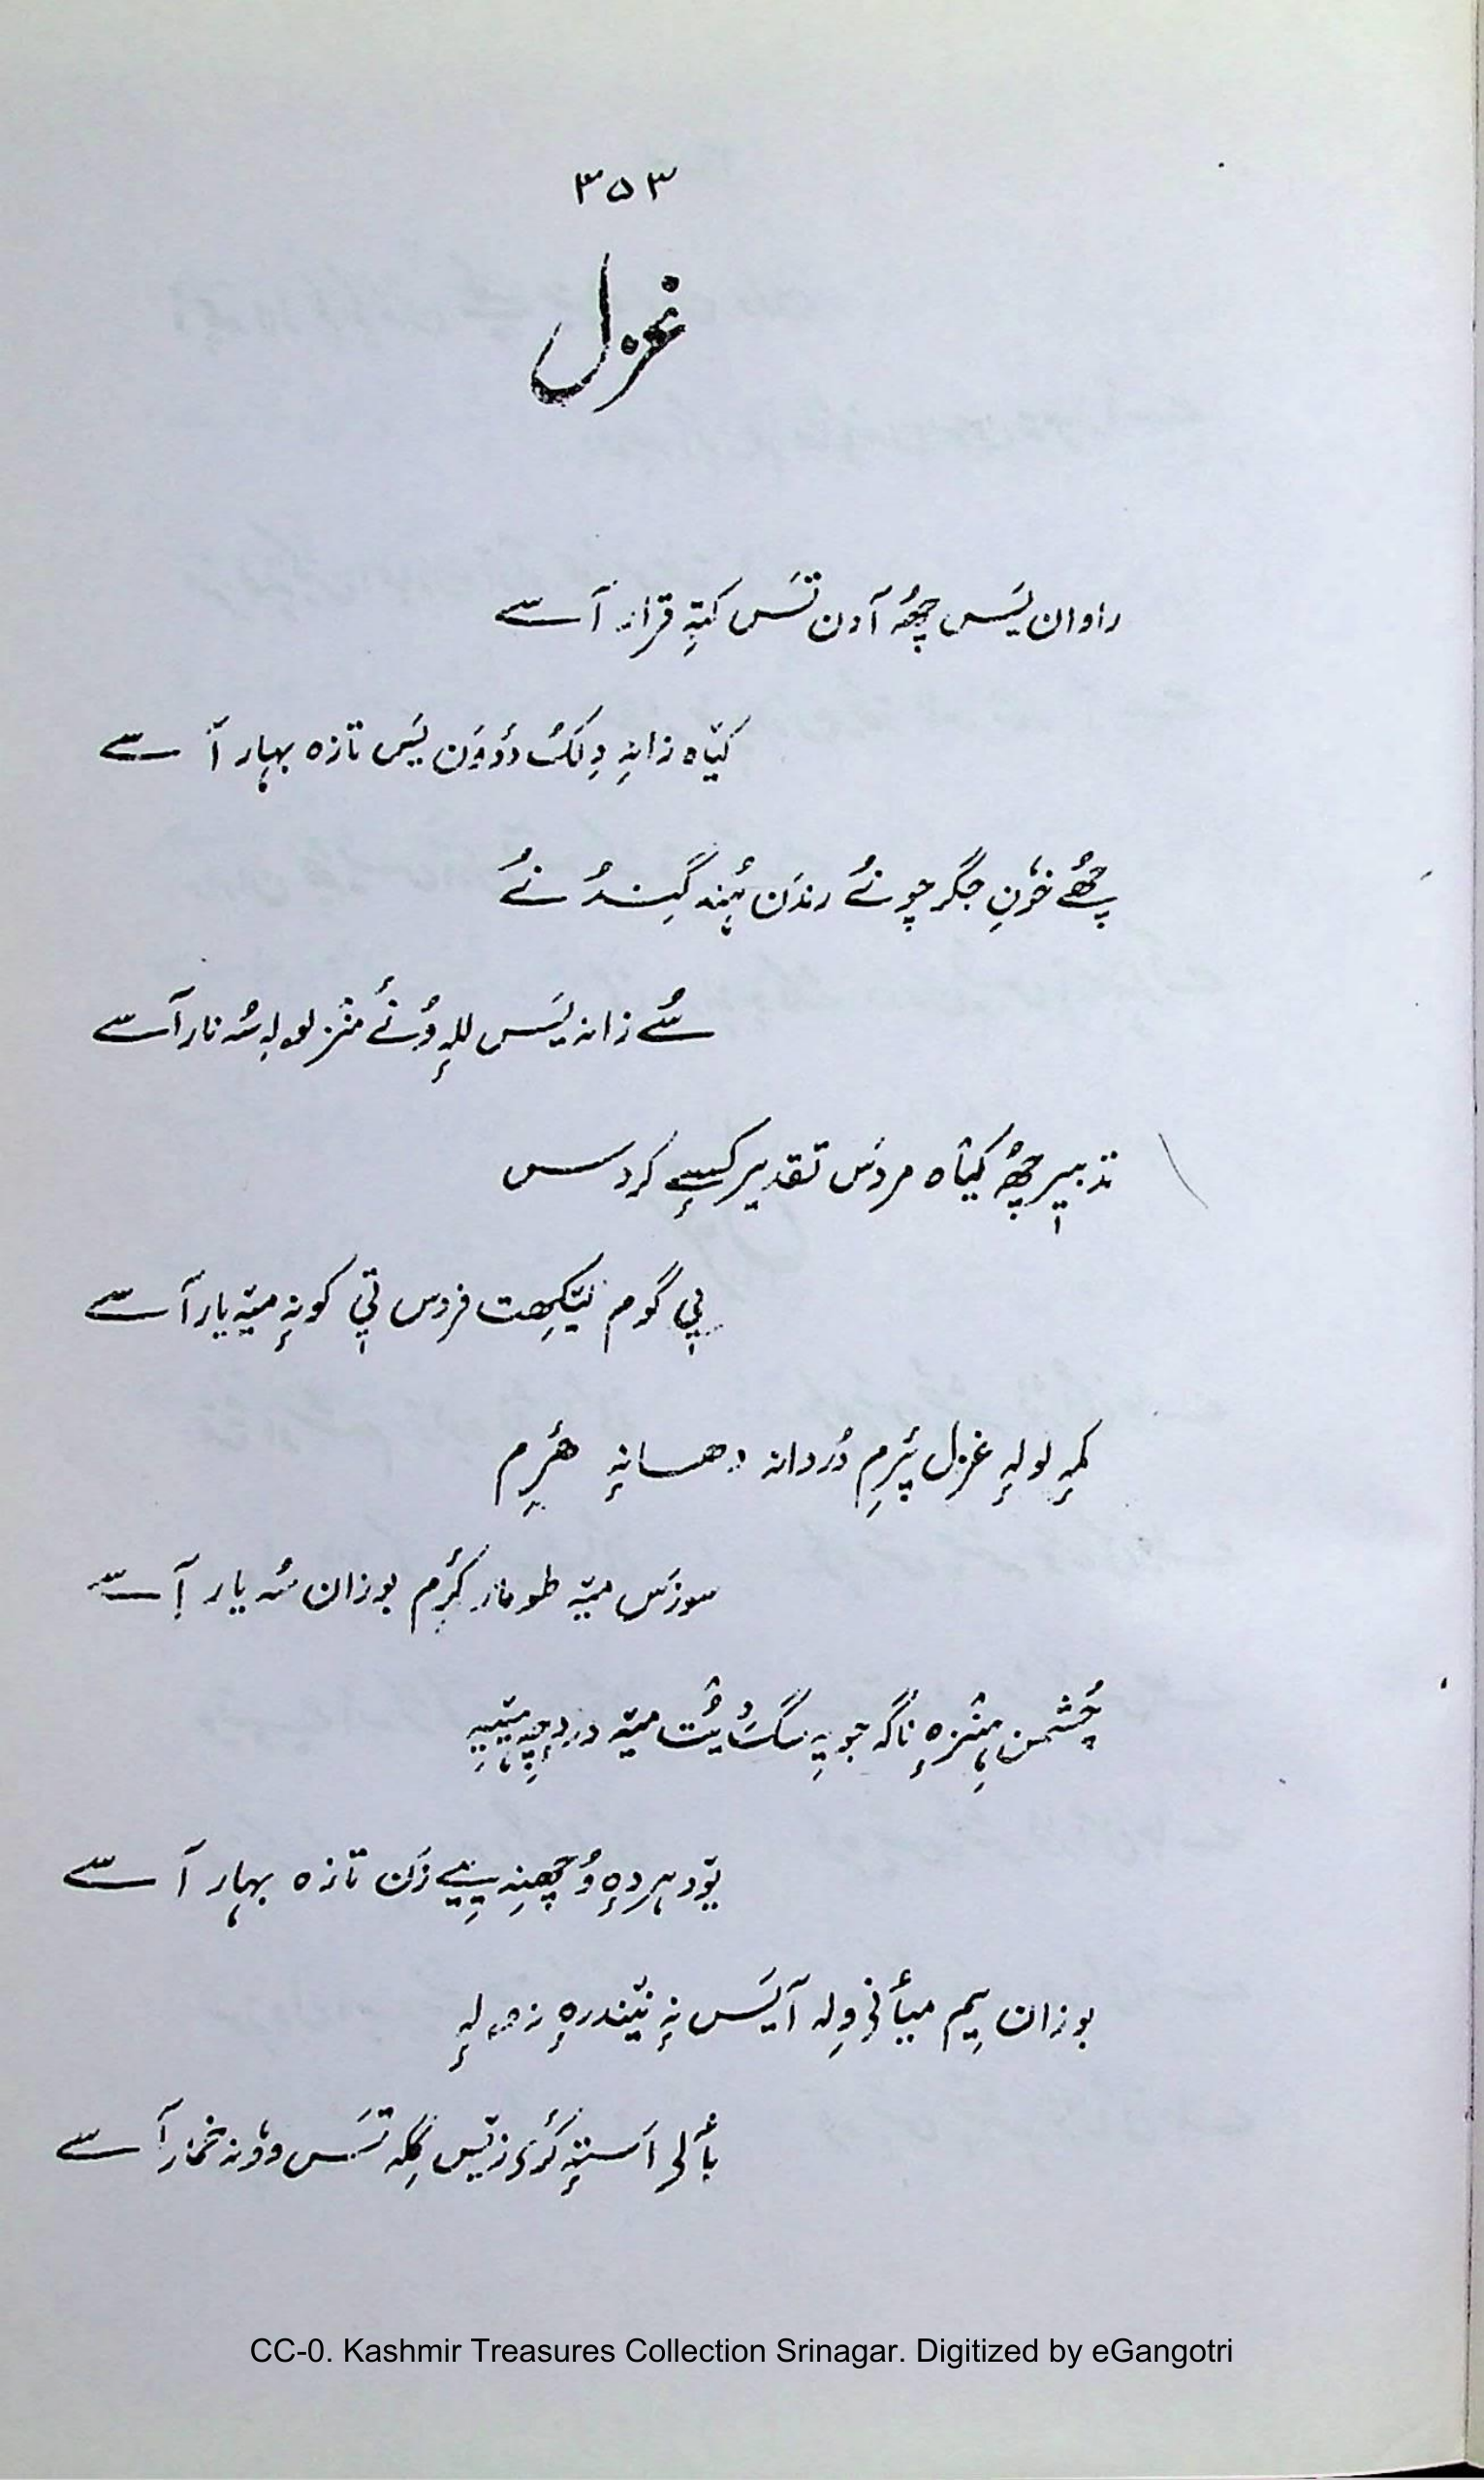 ۳۵۳
غزل
راوان یَس چھُہ آدن تَس کتہِ قرار آسے
کیٚاہ زانہِ دِلکُ دٔدوَن یَس تازہ بہار آسے
چھُے خوٗنِ جگر چونُے رندَن ہُند گِندُنُے
سُے زانہ یَس للہٕ وُنُے منٛز لولہٕ سُہ نار آسے
تدبیٖر چھُہ کیٚاہ مردَس تقدیر کٔسے کردس
پی گوم لیٚکھِت فردس تی کونہٕ میٚہ یار آسے
کمہِ لولہٕ غزل پٔرِم دُردانہ دھانہٕ ۂرِم
سوزَس میٚہ طومار کٔرِم بوزان سُہ یار آسے
چشمن ہِنٛزہٕ ناگہ جویہِ سگُ یُت میٚہ دردہِ چہِ ہیٚیہِ
یوٚد ہردہٕ وُچھنہِ ییٚیے زَن تازہ بہار آسے
بوزان یِم میٲنی وِلہ آیَس نہٕ نیٚندرہٕ زولہٕ
بٲلی اَستہٕ کٔری زیٚس گِلہ تَس ووٗنہ خمار آسے
CC-0. Kashmir Treasures Collection Srinagar. Digitized by eGangotri